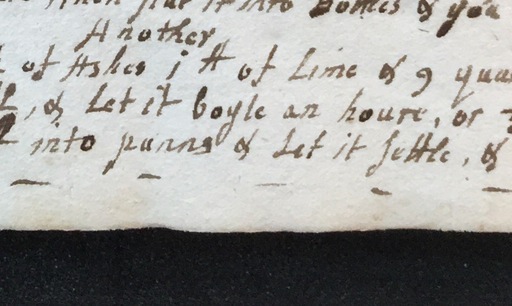 then put it into Bottles & you
Another
of Ashes j ll of Lime & 9 qua
, & Let it boyle an houre, or
into panns & Let it settle, &